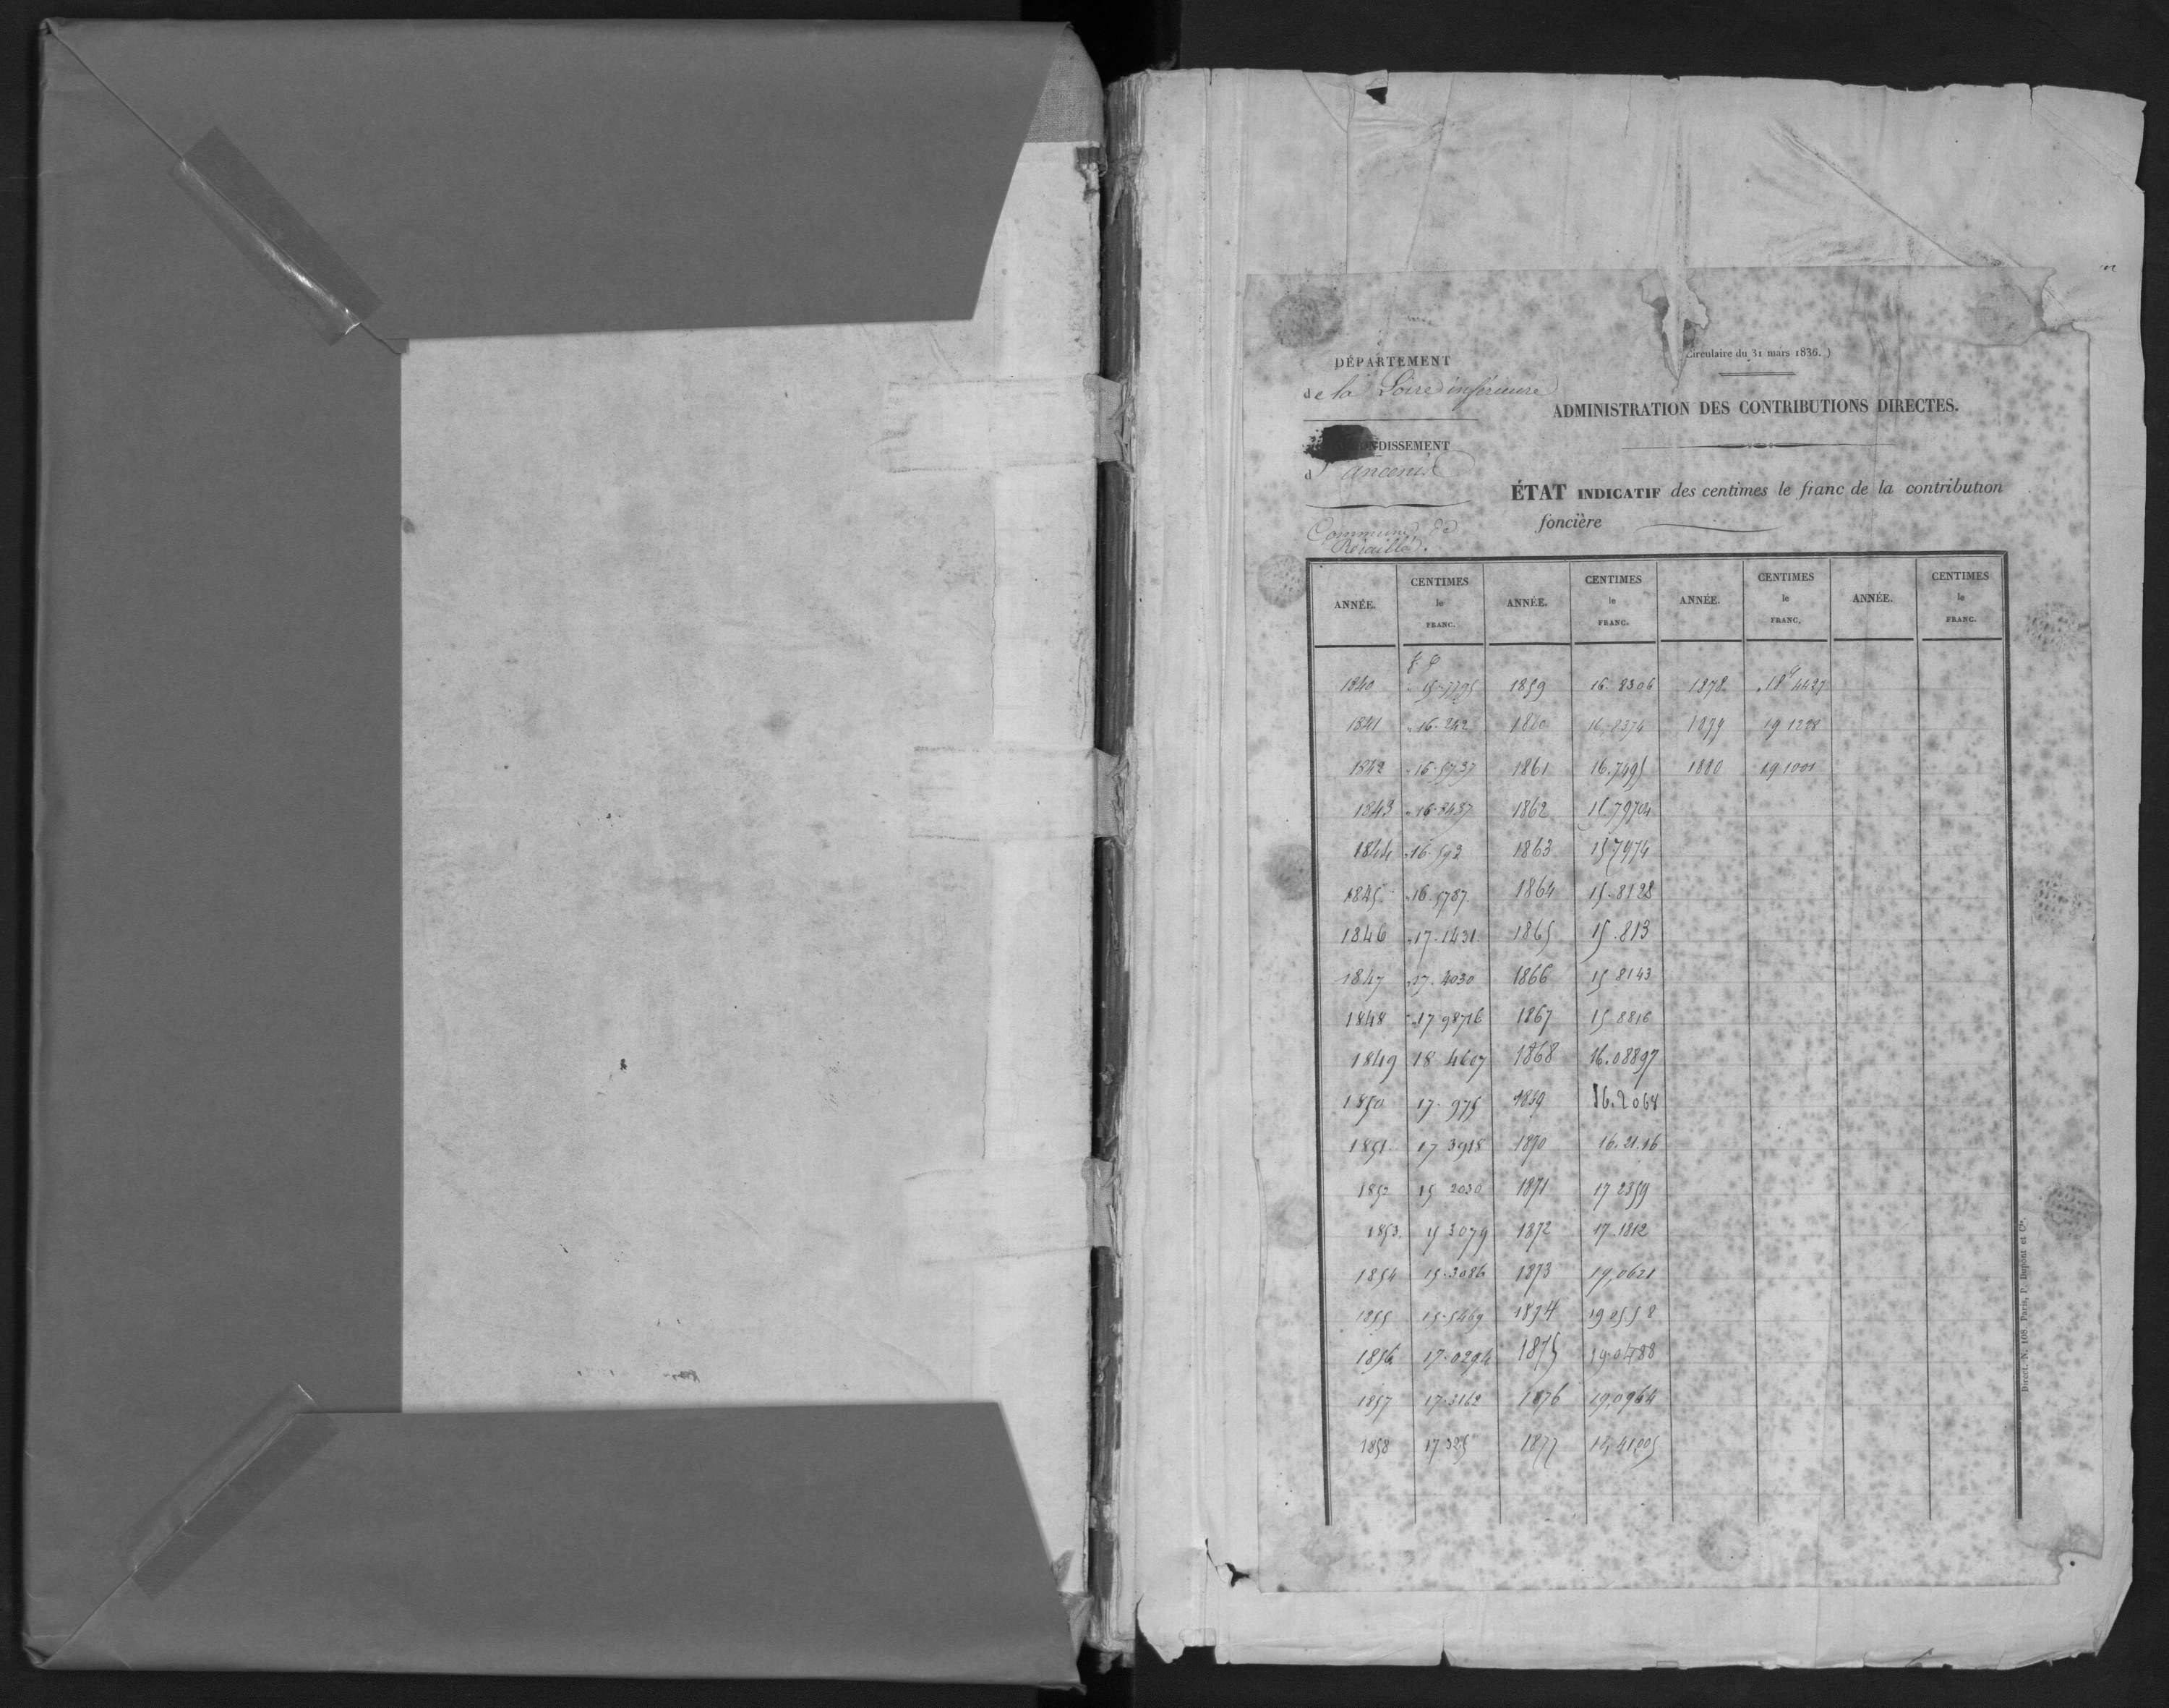 DÉPARTEMENT
de la Loire inférieure
(Circulaire du 31 mars 1836.)
ADMINISTRATION DES CONTRIBUTIONS DIRECTES.
DISSEMENT
d'ancenis
ÉTAT INDICATIF des centimes le franc de la contribution
foncière
Commune de
Riaillé.
ANNÉE. CENTIMES le FRANC. ANNÉE. CENTIMES le FRANC. ANNÉE. CENTIMES le FRANC. ANNÉE. CENTIMES le FRANC.
1840 15-7795 1859 16.8306 1878 18 4427
1841 16-242 1860 16-8374 1879 19 1298
1842 16-5737 1861 16.7495 1880 19 1001
1843 16-5437 1862 15.79704
1844 16-592 1863 15 7974
1845 16.5787 1864 15-8128
1846 17-1431 1865 15.813
1847 17.4030 1866 15 8143
1848 17-98716 1867 15 8816
1849 18 4607 1868 16.08897
1850 17-975 1869 16.2068
1851 17 3918 1870 16.21.16
1852 15 2030 1871 17 2359
1853 15 3079 1872 17.1812
1854 15-3086 1873 19,0621
1855 15-5469 1874 19 2558
1856 17-0294 1875 19.0788
1857 17-3162 1876 19,0964
1858 17.325 1877
Direct. N. 108. Paris, P. Dupont et Cie.